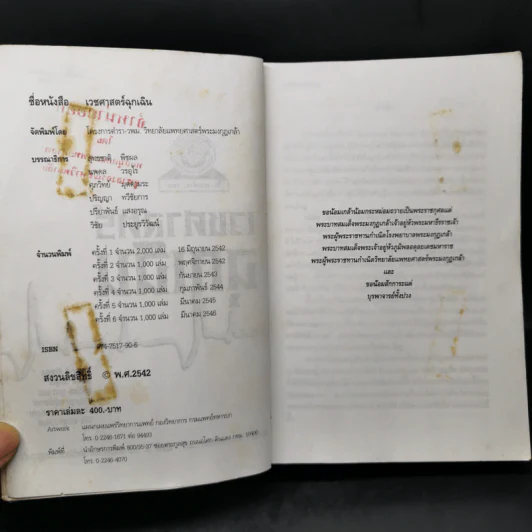 ชื่อหนังสือ เวชศาสตร์ฉุกเฉิน
จัดพิมพ์โดย โครงการตำรา-วพม. วิทยาลัยแพทยศาสตร์พระมงกุฎเกล้า
บรรณาธิการ พืชผล
นพดล วรอุไร
ศุภวิทย์
ปริญญา ทวีชัยการ
ปรียพันธ์ แสงอรุณ
วิชัย ประยูรวิวัฒน์
จำนวนพิมพ์ ครั้งที่ 1 จำนวน 2,000 เล่ม 16 มิถุนายน 2542
ครั้งที่ 2 จำนวน 1,000 เล่ม พฤศจิกายน 2542
ครั้งที่ 3 จำนวน 1,000 เล่ม กันยายน 2543
ครั้งที่ 4 จำนวน 1,000 เล่ม กุมภาพันธ์ 2544
ครั้งที่ 5 จำนวน 1,000 เล่ม มีนาคม 2545
ครั้งที่ 6 จำนวน 1,000 เล่ม มีนาคม 2546
ISBN 974-7517-90-6
สงวนลิขสิทธิ์ © พ.ศ.2542
ราคาเล่มละ 400.-บาท
Artwork แผนกเผยแพร่วิทยาการแพทย์ กองวิทยาการ กรมแพทย์ทหารบก
โทร. 0-2246-1671 ต่อ 94403
พิมพ์ที่
โทร. 0-2248-4070
ขอน้อมเกล้าน้อมกระหม่อมถวายเป็นพระราชกุศลแด่
พระบาทสมเด็จพระมงกุฎเกล้าเจ้าอยู่หัวพระมหาธีรราชเจ้า
พระผู้พระราชทานกำเนิดโรงพยาบาลพระมงกุฎเกล้า
พระบาทสมเด็จพระเจ้าอยู่หัวภูมิพลอดุลยเดชมหาราช
พระผู้พระราชทานกำเนิดวิทยาลัยแพทยศาสตร์พระมงกุฎเกล้า
และ
ขอน้อมสักการะแด่
บูรพาจารย์ทั้งปวง